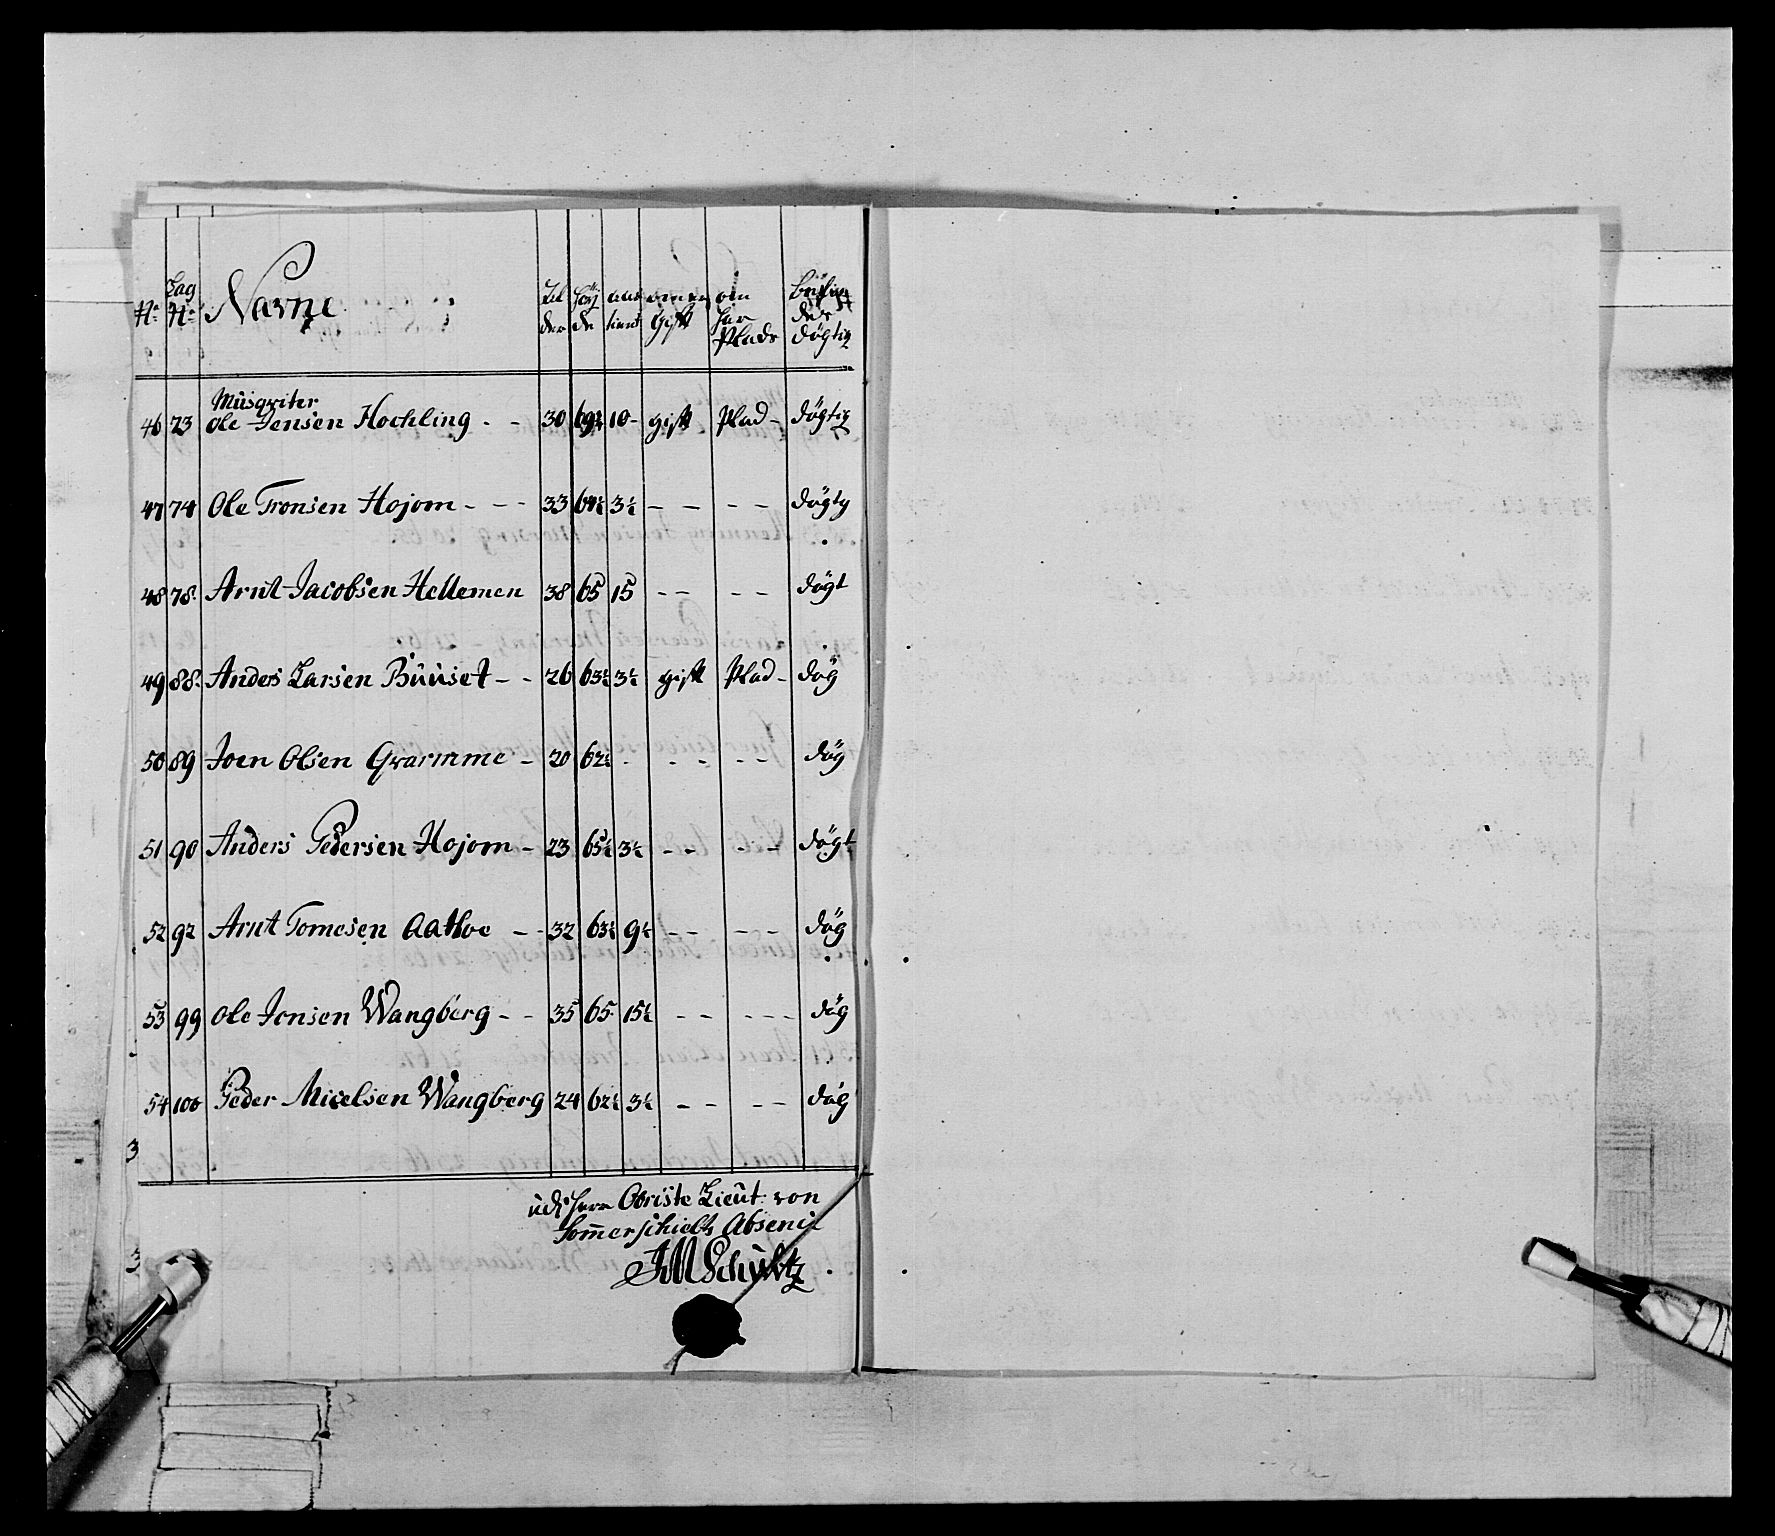 No Lag No Navne Al der Höy de aar tient om er gift om har Plads befin des dögtig
Müsqviter
46 73 Ole Jensen Hochling - - 30 69½ 10 - gift Plad - dögtig
47 74 Ole Tronsen Hojom - - - 33 64½ 3½ - - - - dögtg
48 78. Arnt Jacobsen Hellemen 38 65 15 - - - - dögt
49 88. Anders Larsen Büüset - - 26 63½ 3½ gift Plad - dög
50 89 Joen Olsen Qvamme - 20 62½ - - - - - dög
51 90 Anders Pedersen Hojom - 23 65½ 3½ - - - - dögt
52 92 Arnt Tomesen Aathoe - - 32 63½ 9½ - - - - dög
53 99 Ole Jonsen Wangberg - - 35 65 15½ - - - - - dög
54 100 Peder Micelsen Wangberg 24 62½ 3½ - - - - dög
3
udi Herr Obriste Lieut: von
Somerschields Absence
JM Schultz
3